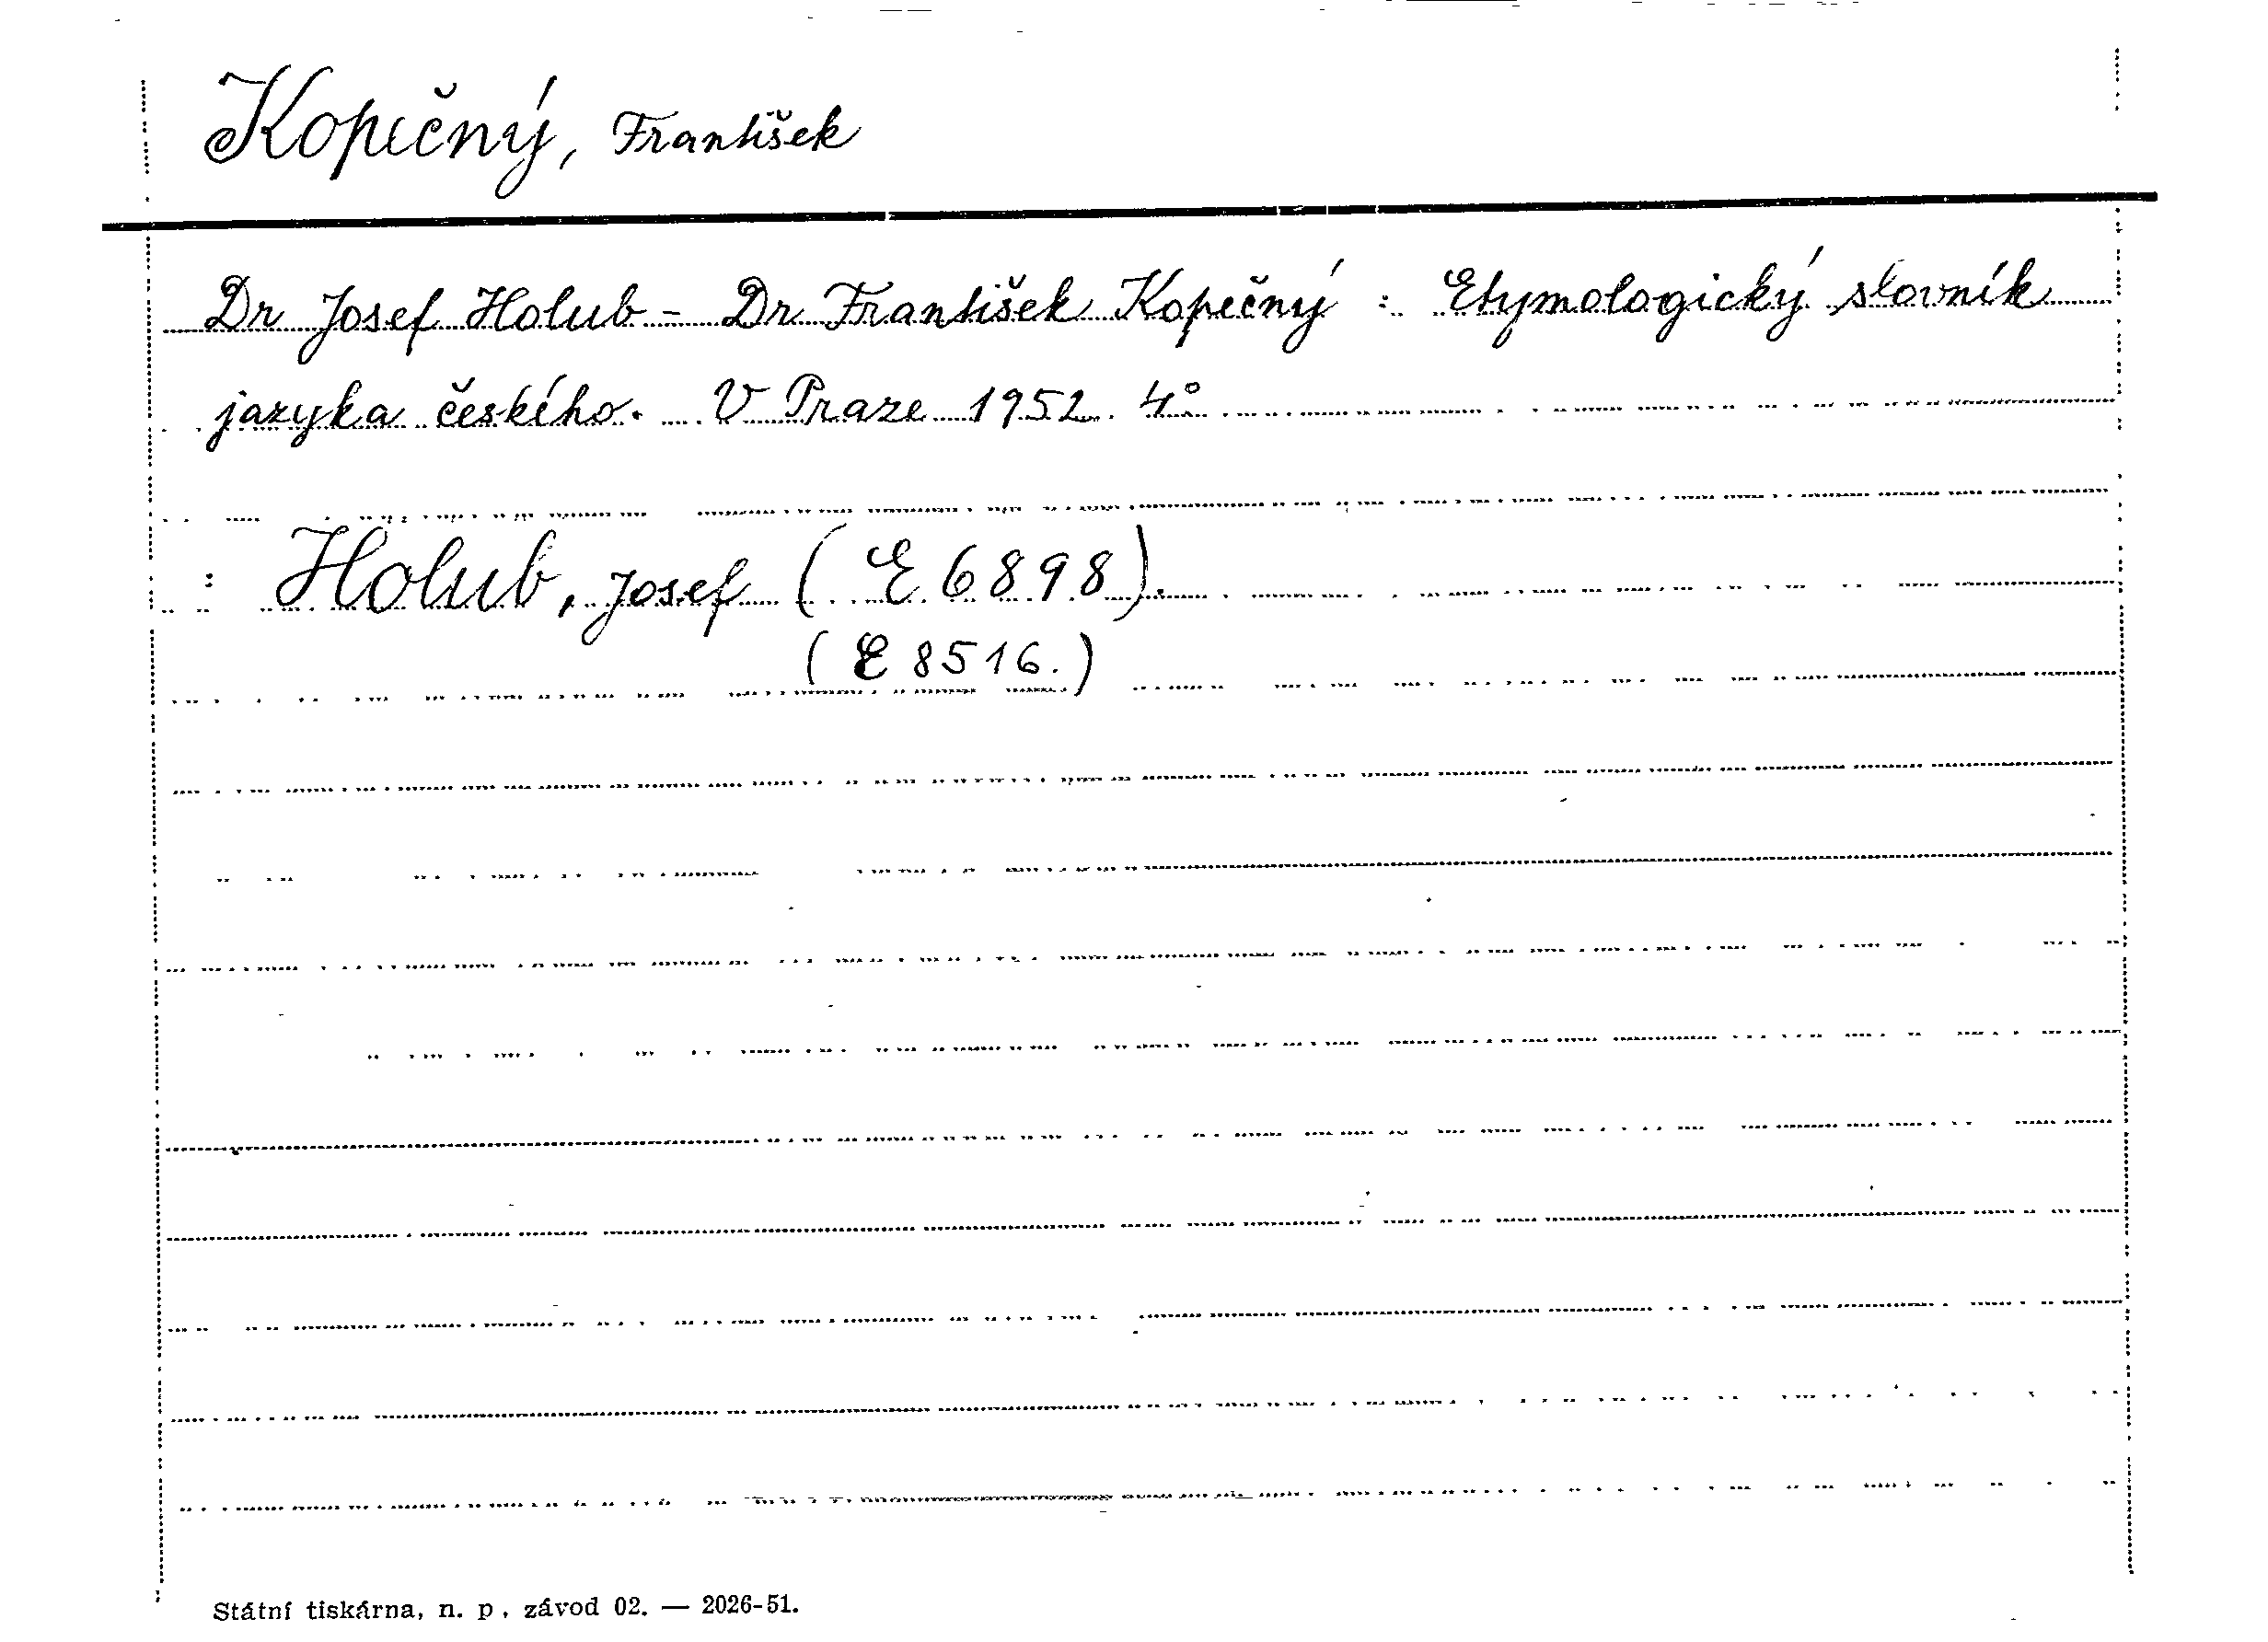 Kopečný, František
Dr Josef Holub - Dr František Kopečný : Etymologický slovník
jazyka českého. V Praze 1952. 4°
: Holub, Josef ( E 6898).
( E 8516.)
Státní tiskárna, n. p. závod 02. — 2026-51.